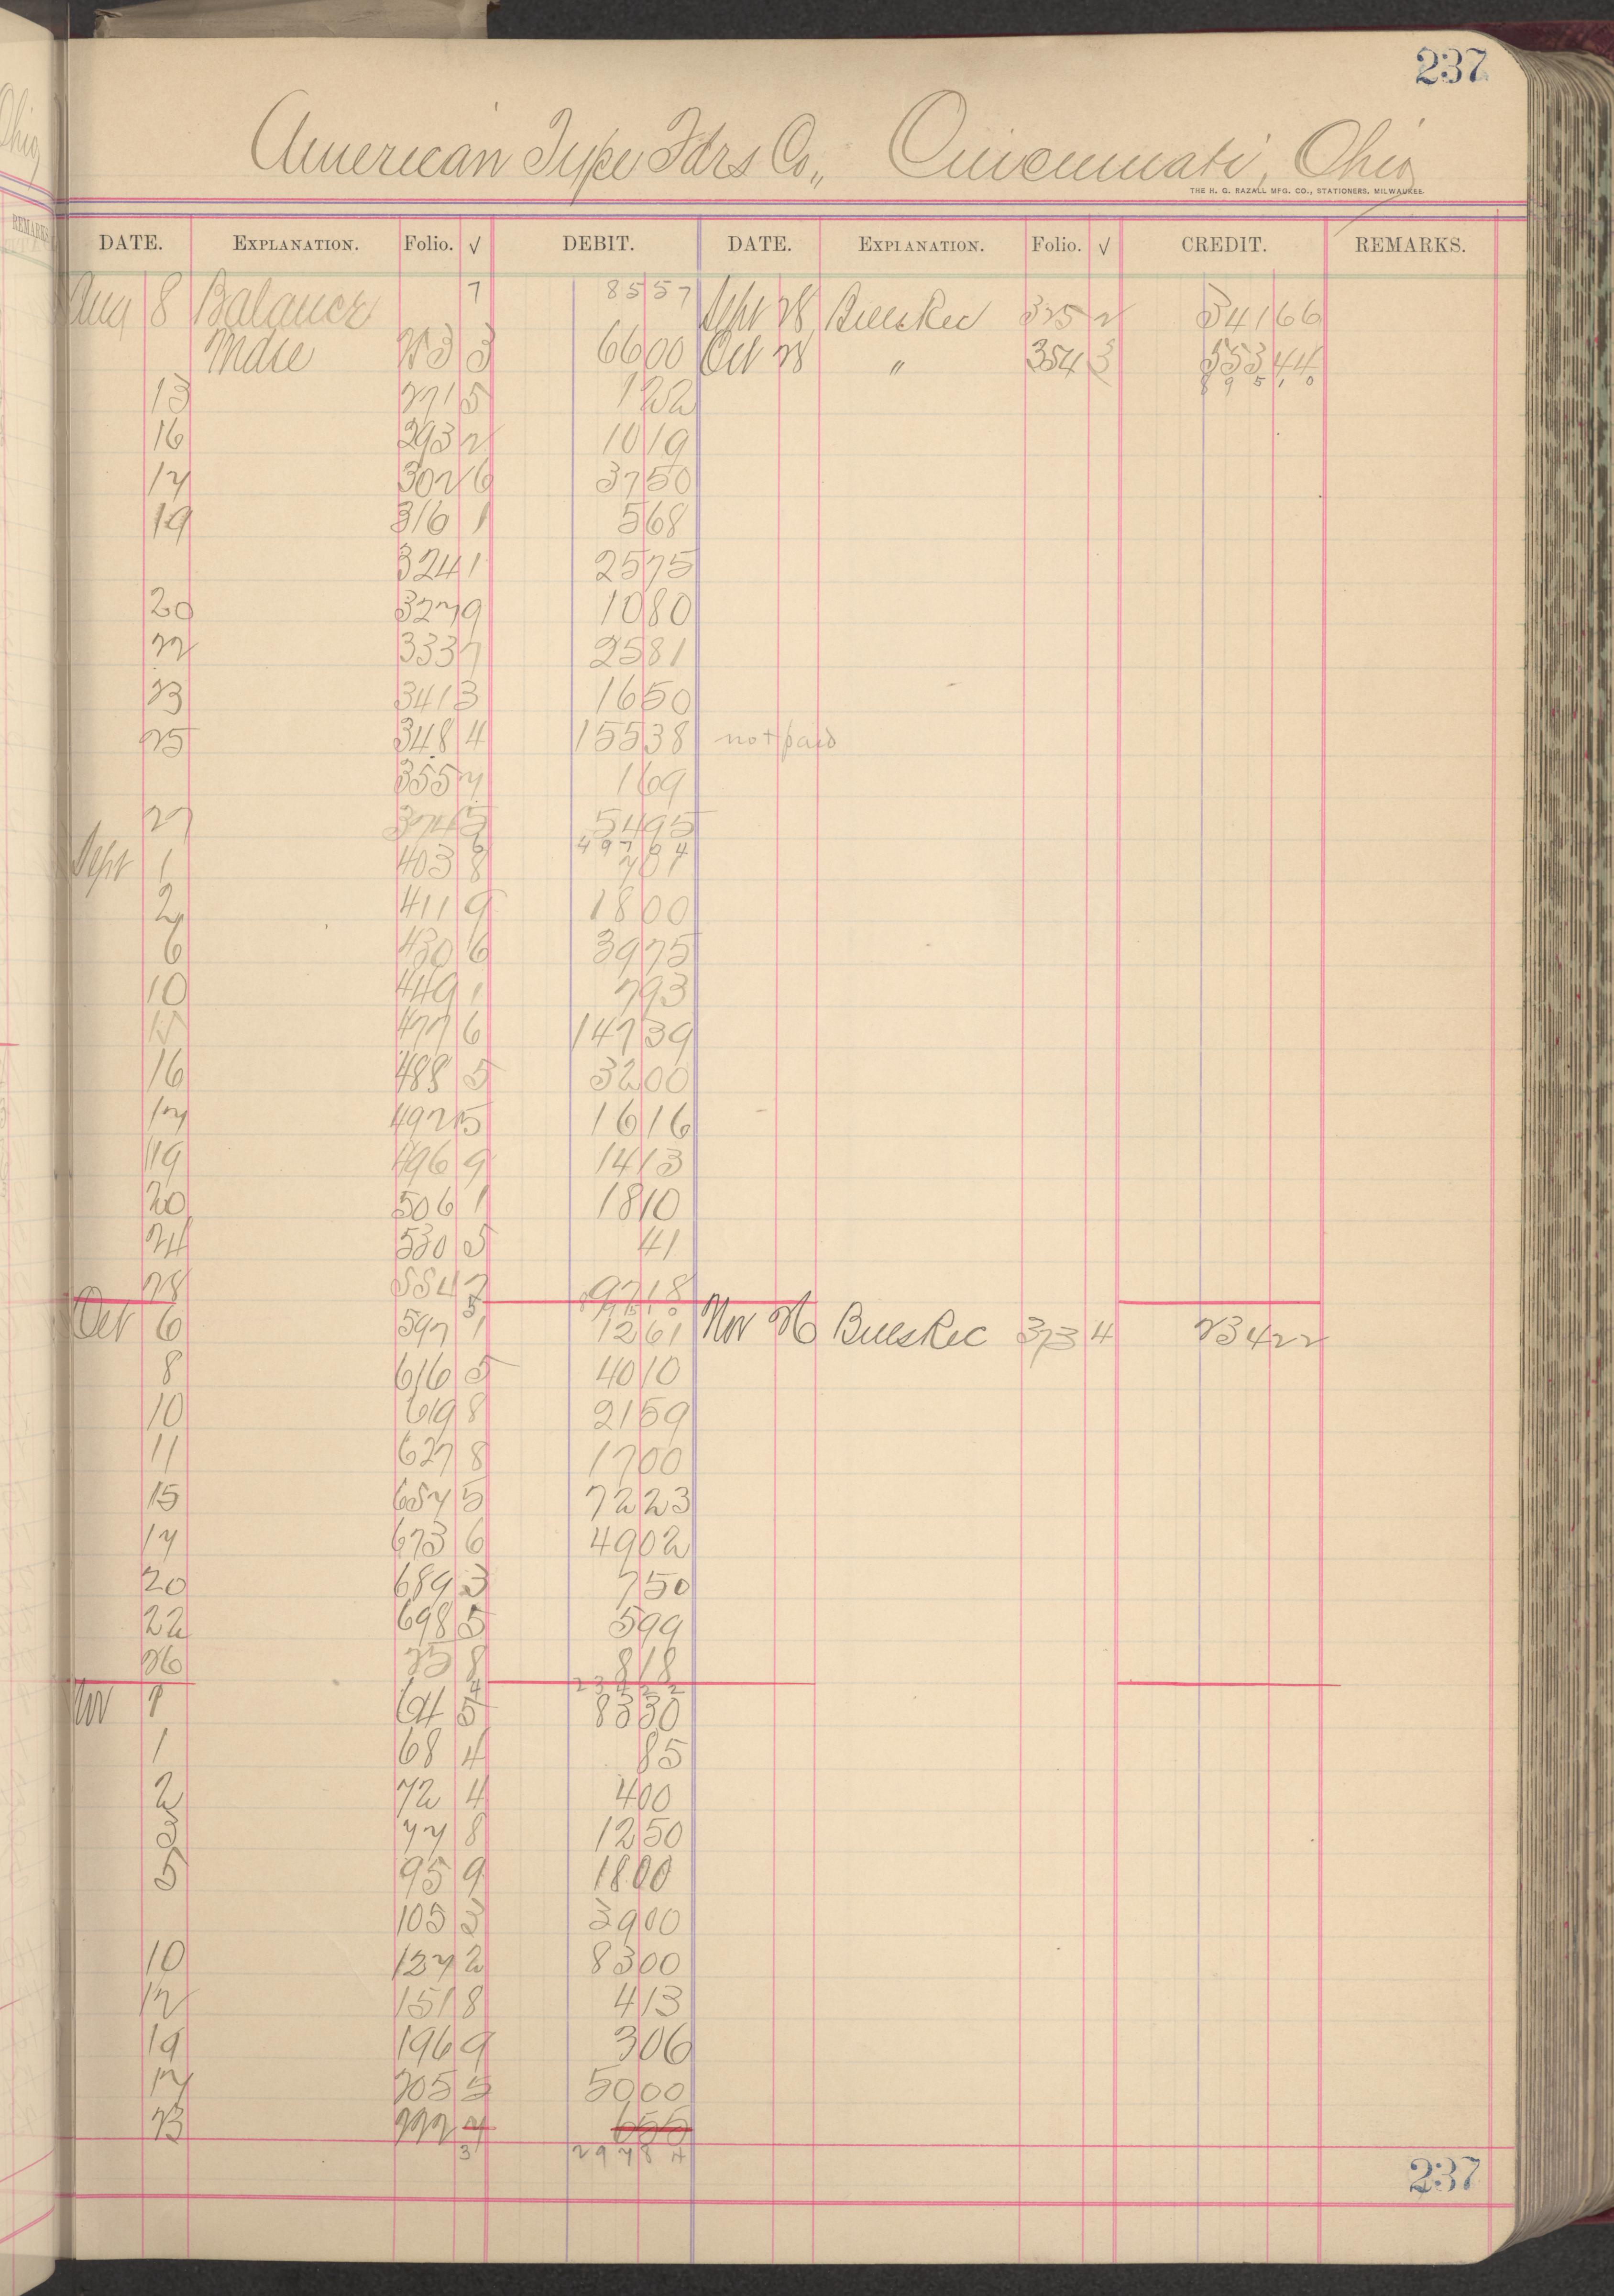 237
American Type Fdrs Co., Cincinnati, Ohio
THE H. G. RAZALL MFG. CO., STATIONERS, MILWAUKEE.
DATE. EXPLANATION. Folio. √ DEBIT. DATE. EXPLANATION. Folio. √ CREDIT. REMARKS.
Aug 8 Balance 7 85 57 Sept 28 Bills Rec 325 2 341 66
Mdse 253 3 66 00 Oct 28 " 354 3 553 44
895 10
13 271 5 1 22
16 293 2 10 19
17 302 6 37 50
19 316 1 5 68
324 1 25 75
20 327 9 10 80
22 333 7 25 81
23 341 3 16 50
25 348 4 155 38 not paid
355 7 1 69
27 374 5 54 95
497 04
Sept 1 403 8 7 01
2 411 9 18 00
6 430 6 39 75
10 449 1 7 93
15 477 6 147 39
16 488 5 32 00
17 492 5 16 16
19 496 9 14 13
20 506 1 18 10
24 530 5 41
28 554 7 97 18
895 10
Oct 6 597 1 12 61 Nov 26 Bills Rec 373 4 234 22
8 616 5 40 10
10 619 8 21 59
11 627 8 17 00
15 657 5 72 23
17 673 6 49 02
20 689 3 7 50
22 698 5 5 99
26 25 8 8 18
4 234 22
Nov 1 64 5 83 30
1 68 4 85
2 72 4 4 00
3 77 8 12 50
5 95 9 18 00
105 3 39 00
10 137 2 83 00
12 151 8 4 13
19 196 9 3 06
17 205 5 50 00
23 222 7 6 55
3 297 84
237